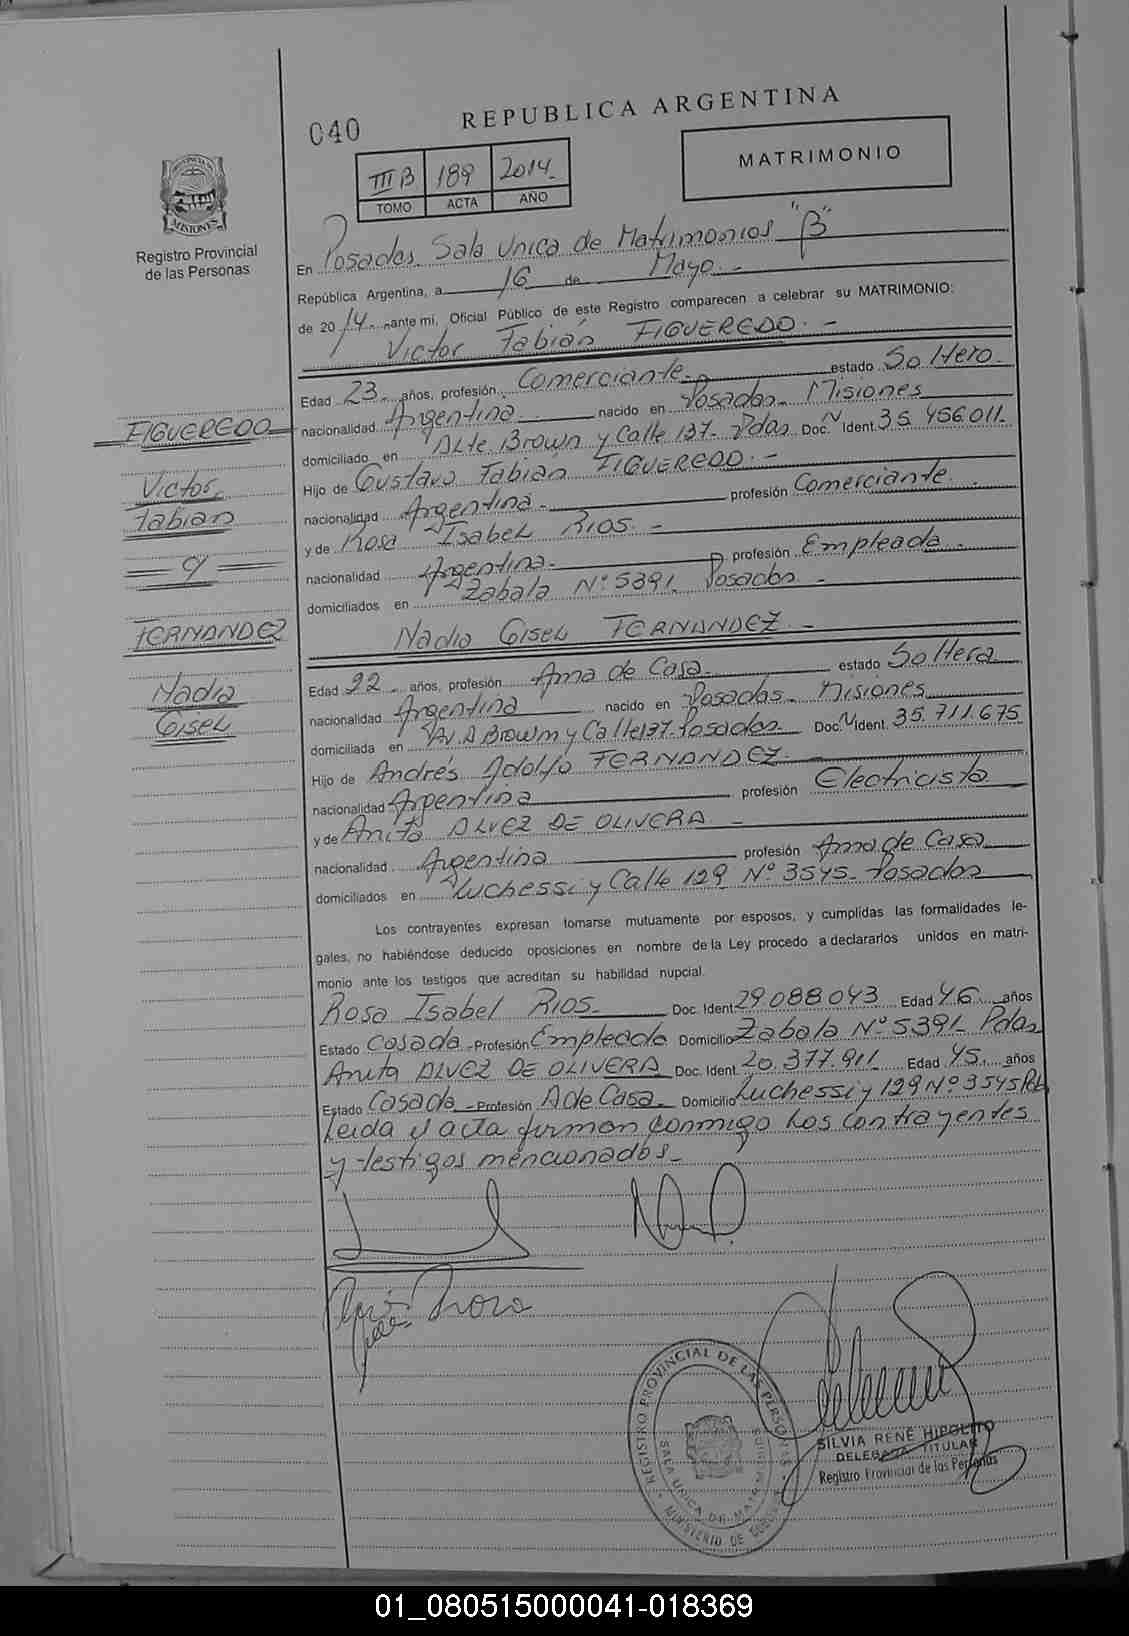 040
REPUBLICA ARGENTINA
III B 189 2014
TOMO ACTA AÑO
MATRIMONIO
PROVINCIA DE
MISIONES
Registro Provincial
de las Personas
En Posadas Sala Unica de Matrimonios "B"
República Argentina, a 16 de Mayo.-
de 2014, ante mi, Oficial Público de este Registro comparecen a celebrar su MATRIMONIO:
Victor Fabián FIGUEREDO.-
Edad 23. años, profesión Comerciante estado Soltero
nacionalidad Argentina nacido en Posadas Misiones
domiciliado en Alte. Brown y Calle 137- Pdas Doc. N Ident. 35.456.011.
Hijo de Gustavo Fabián FIGUEREDO.-
nacionalidad Argentina. profesión Comerciante.
y de Rosa Isabel RIOS.-
nacionalidad Argentina. profesión Empleada.
domiciliados en Zabala Nº 5391. Posadas.-
Nadia Gisel FERNANDEZ.-
Edad 22. años, profesión Ama de Casa estado Soltera
nacionalidad Argentina nacido en Posadas- Misiones
domiciliada en Av. A Brown y Calle 137-Posadas Doc. N Ident. 35.711.675
Hijo de Andrés Adolfo FERNANDEZ.
nacionalidad Argentina profesión Electricista
y de Anita ALVEZ DE OLIVERA.-
nacionalidad Argentina profesión Ama de Casa
domiciliados en Luchessi y Calle 129 Nº 3545- Posadas
FIGUEREDO
Victor
Fabian
c/
FERNANDEZ
Nadia
Gisel
Los contrayentes expresan tomarse mutuamente por esposos, y cumplidas las formalidades le-
gales, no habiéndose deducido oposiciones en nombre de la Ley procedo a declararlos unidos en matri-
monio ante los testigos que acreditan su habilidad nupcial.
Rosa Isabel RIOS. Doc. Ident. 29.088.043 Edad 46. años
Estado Casada - Profesión Empleada Domicilio Zabala Nº 5391- Pdas
Anita ALVEZ DE OLIVERA Doc. Ident. 20.377.911 Edad 45. años
Estado Casada - Profesión A de Casa. Domicilio Luchessi y 129 Nº 3545
Leida el acta firman conmigo los contrayentes
y testigos mencionados.-
REGISTRO PROVINCIAL DE LAS PERSONAS
SALA UNICA DE MATRIMONIOS
MINISTERIO DE GOBIERNO
SILVIA RENE HIPOLITO
DELEGADA TITULAR
Registro Provincial de las Personas
01_080515000041-018369